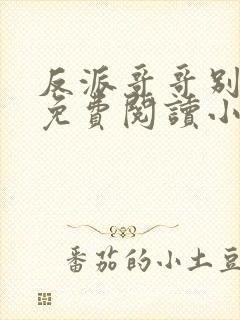 反派哥哥别
免費閱讀小
番茄的小土豆